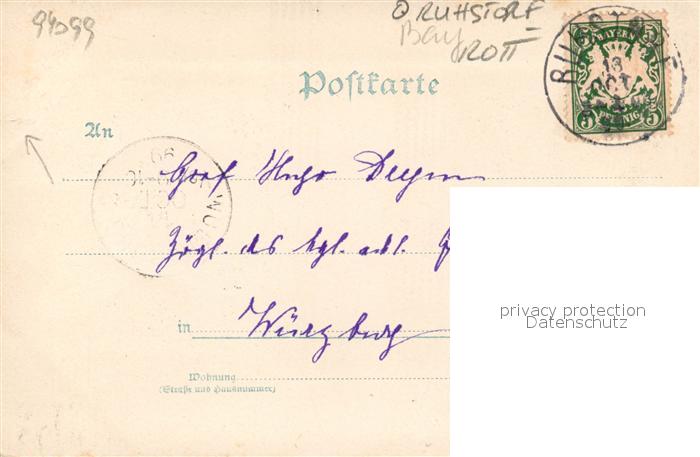 94099
⊙ RUHSTORF
Bay ROTT
BAYERN
5 5
PFENNIG
RUHSTORF
13
OCT
Postkarte
An
Graf Hugo Deym
Zögl. des kgl. adl.
in Würzburg
Wohnung
(Straße und Hausnummer)
privacy protection
Datenschutz